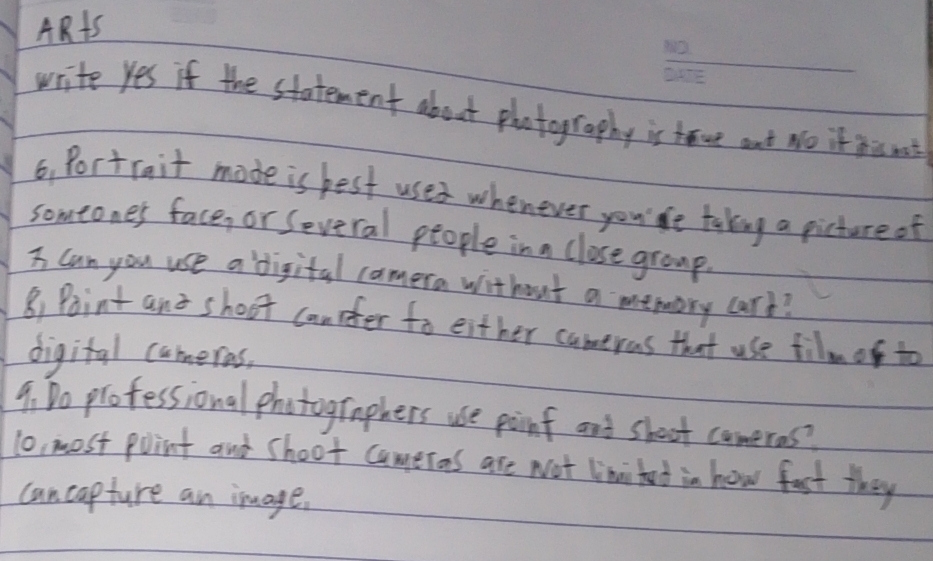 ARts
NO.
DATE
write Yes if the statement about photography is true and No if it is not
6, Portrait mode is best used whenever you're taking a picture of
someone's face, or several people in a close group.
7, Can you use a digital camera without a memory card?
8, Point and shoot can refer to either cameras that use film or to
digital cameras.
9. Do professional photographers use point and shoot cameras?
10, most point and shoot cameras are Not limited in how fast they
can capture an image.